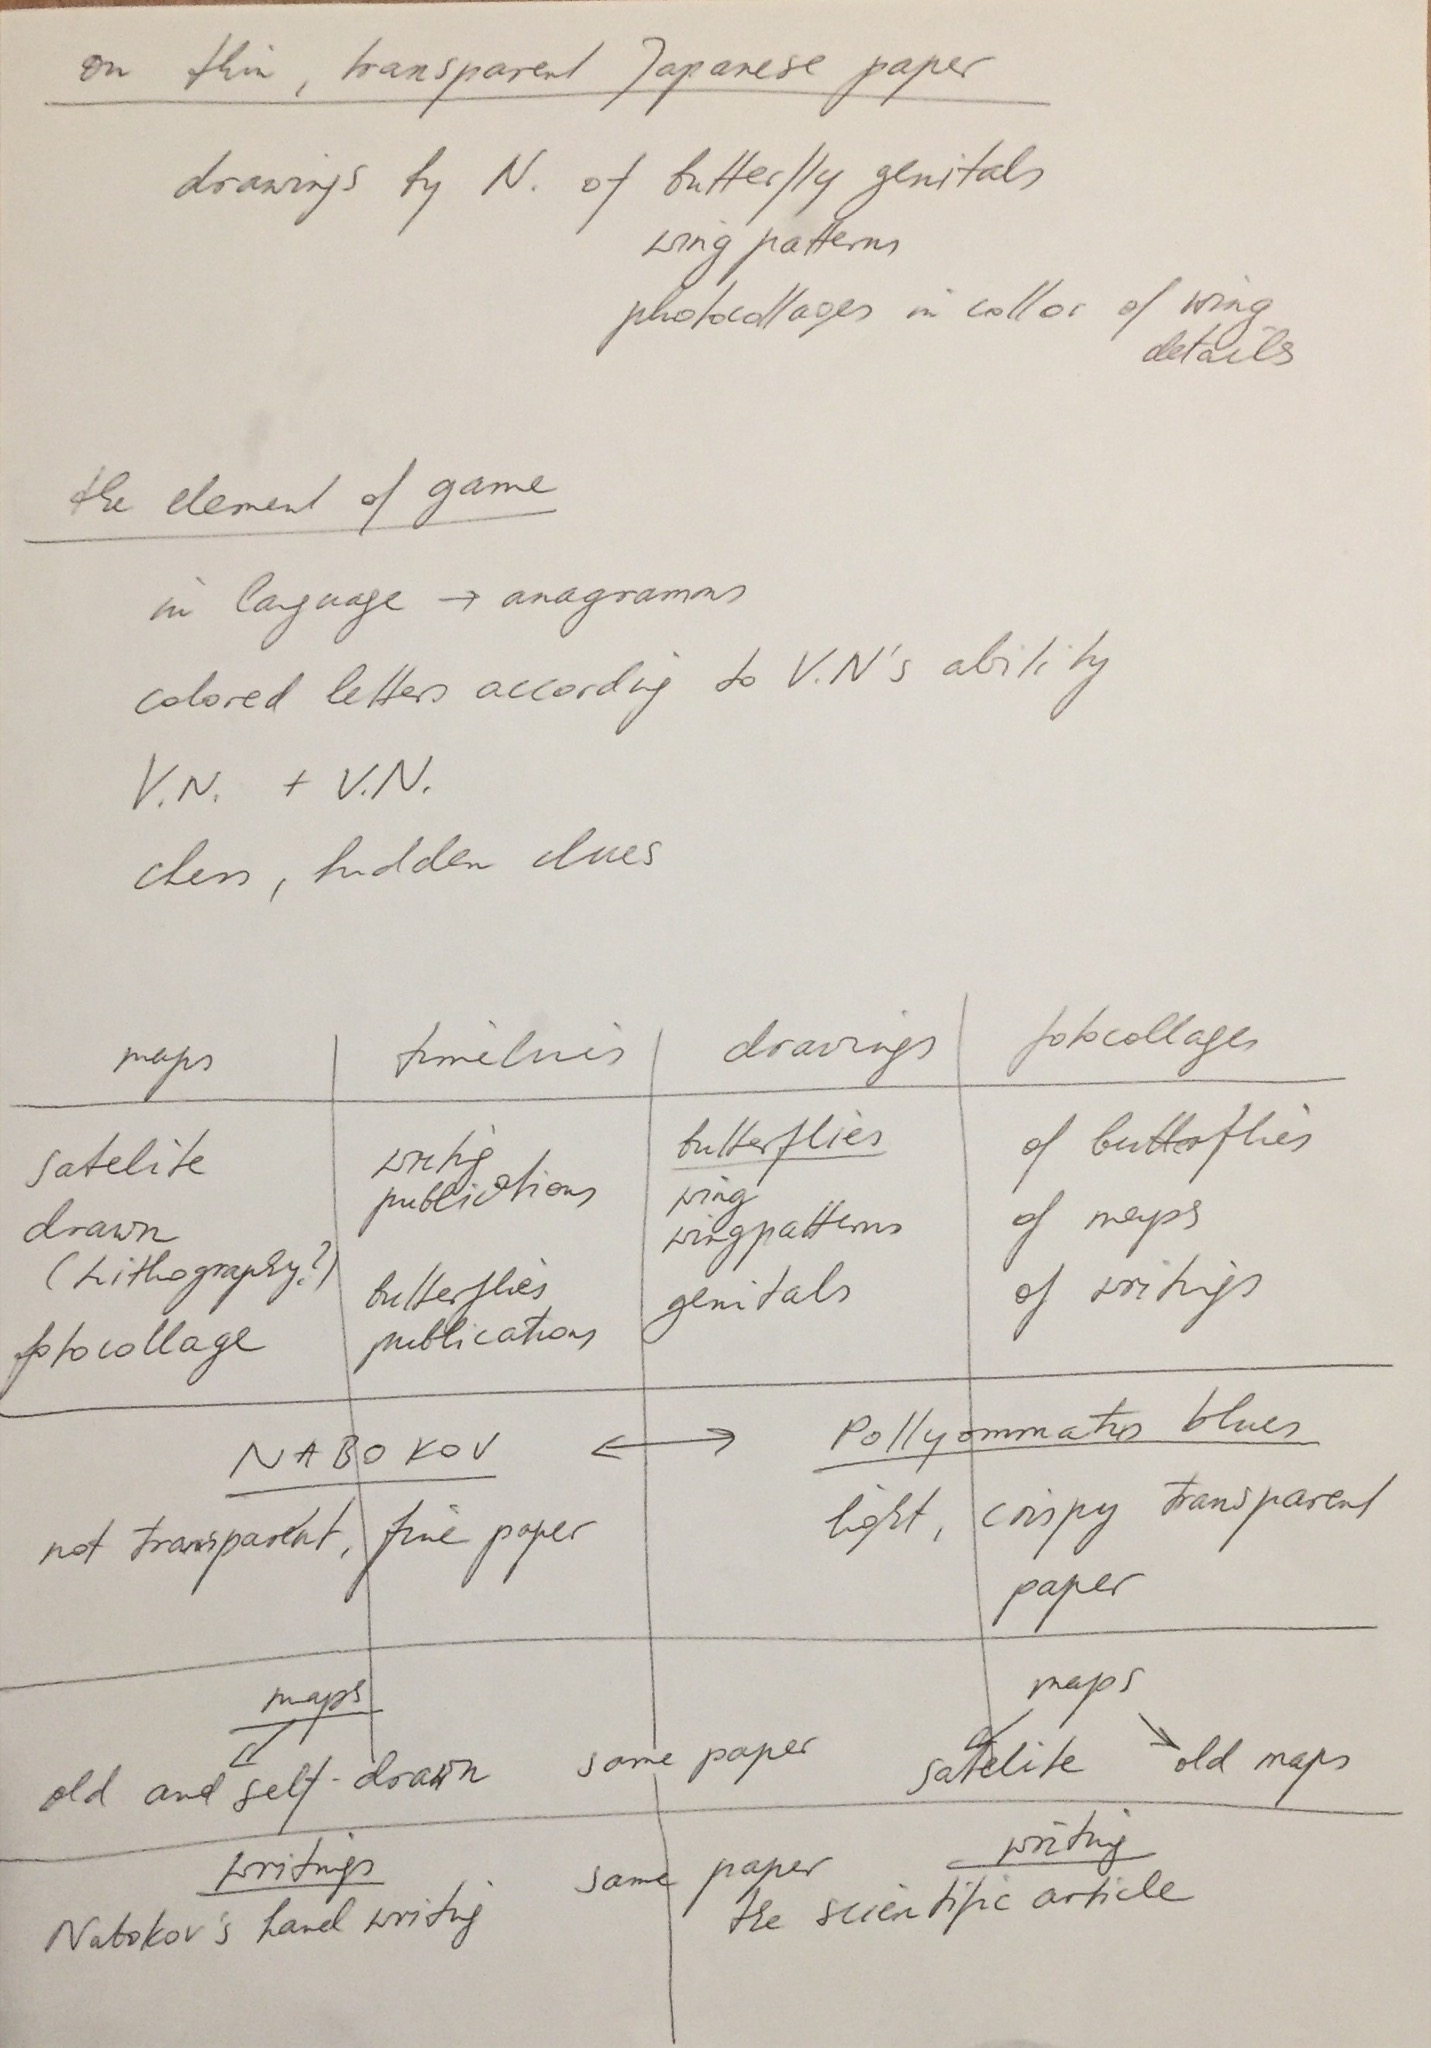 on thin, transparent Japanese paper
drawings by N. of butterfly genitals
wing patterns
photocollages in collor of wing
details
the element of game
in language → anagramms
colored letters according to V.N's ability
V.N. + V.N.
chess, hidden clues
maps timelines drawings fotocollages
satelite
drawn
(Lithography?)
fotocollage
writing
publications
butterflies
publications
butterflies
wing
wingpatterns
genitals
of butterflies
of maps
of writings
NABOKOV ↔ Pollyommatus blues
not transparent, fine paper
light, crispy transparent
paper
maps
old and self-drawn
same paper
maps
satelite old maps
writings
Nabokov's hand writing
same paper
writing
the scientific article